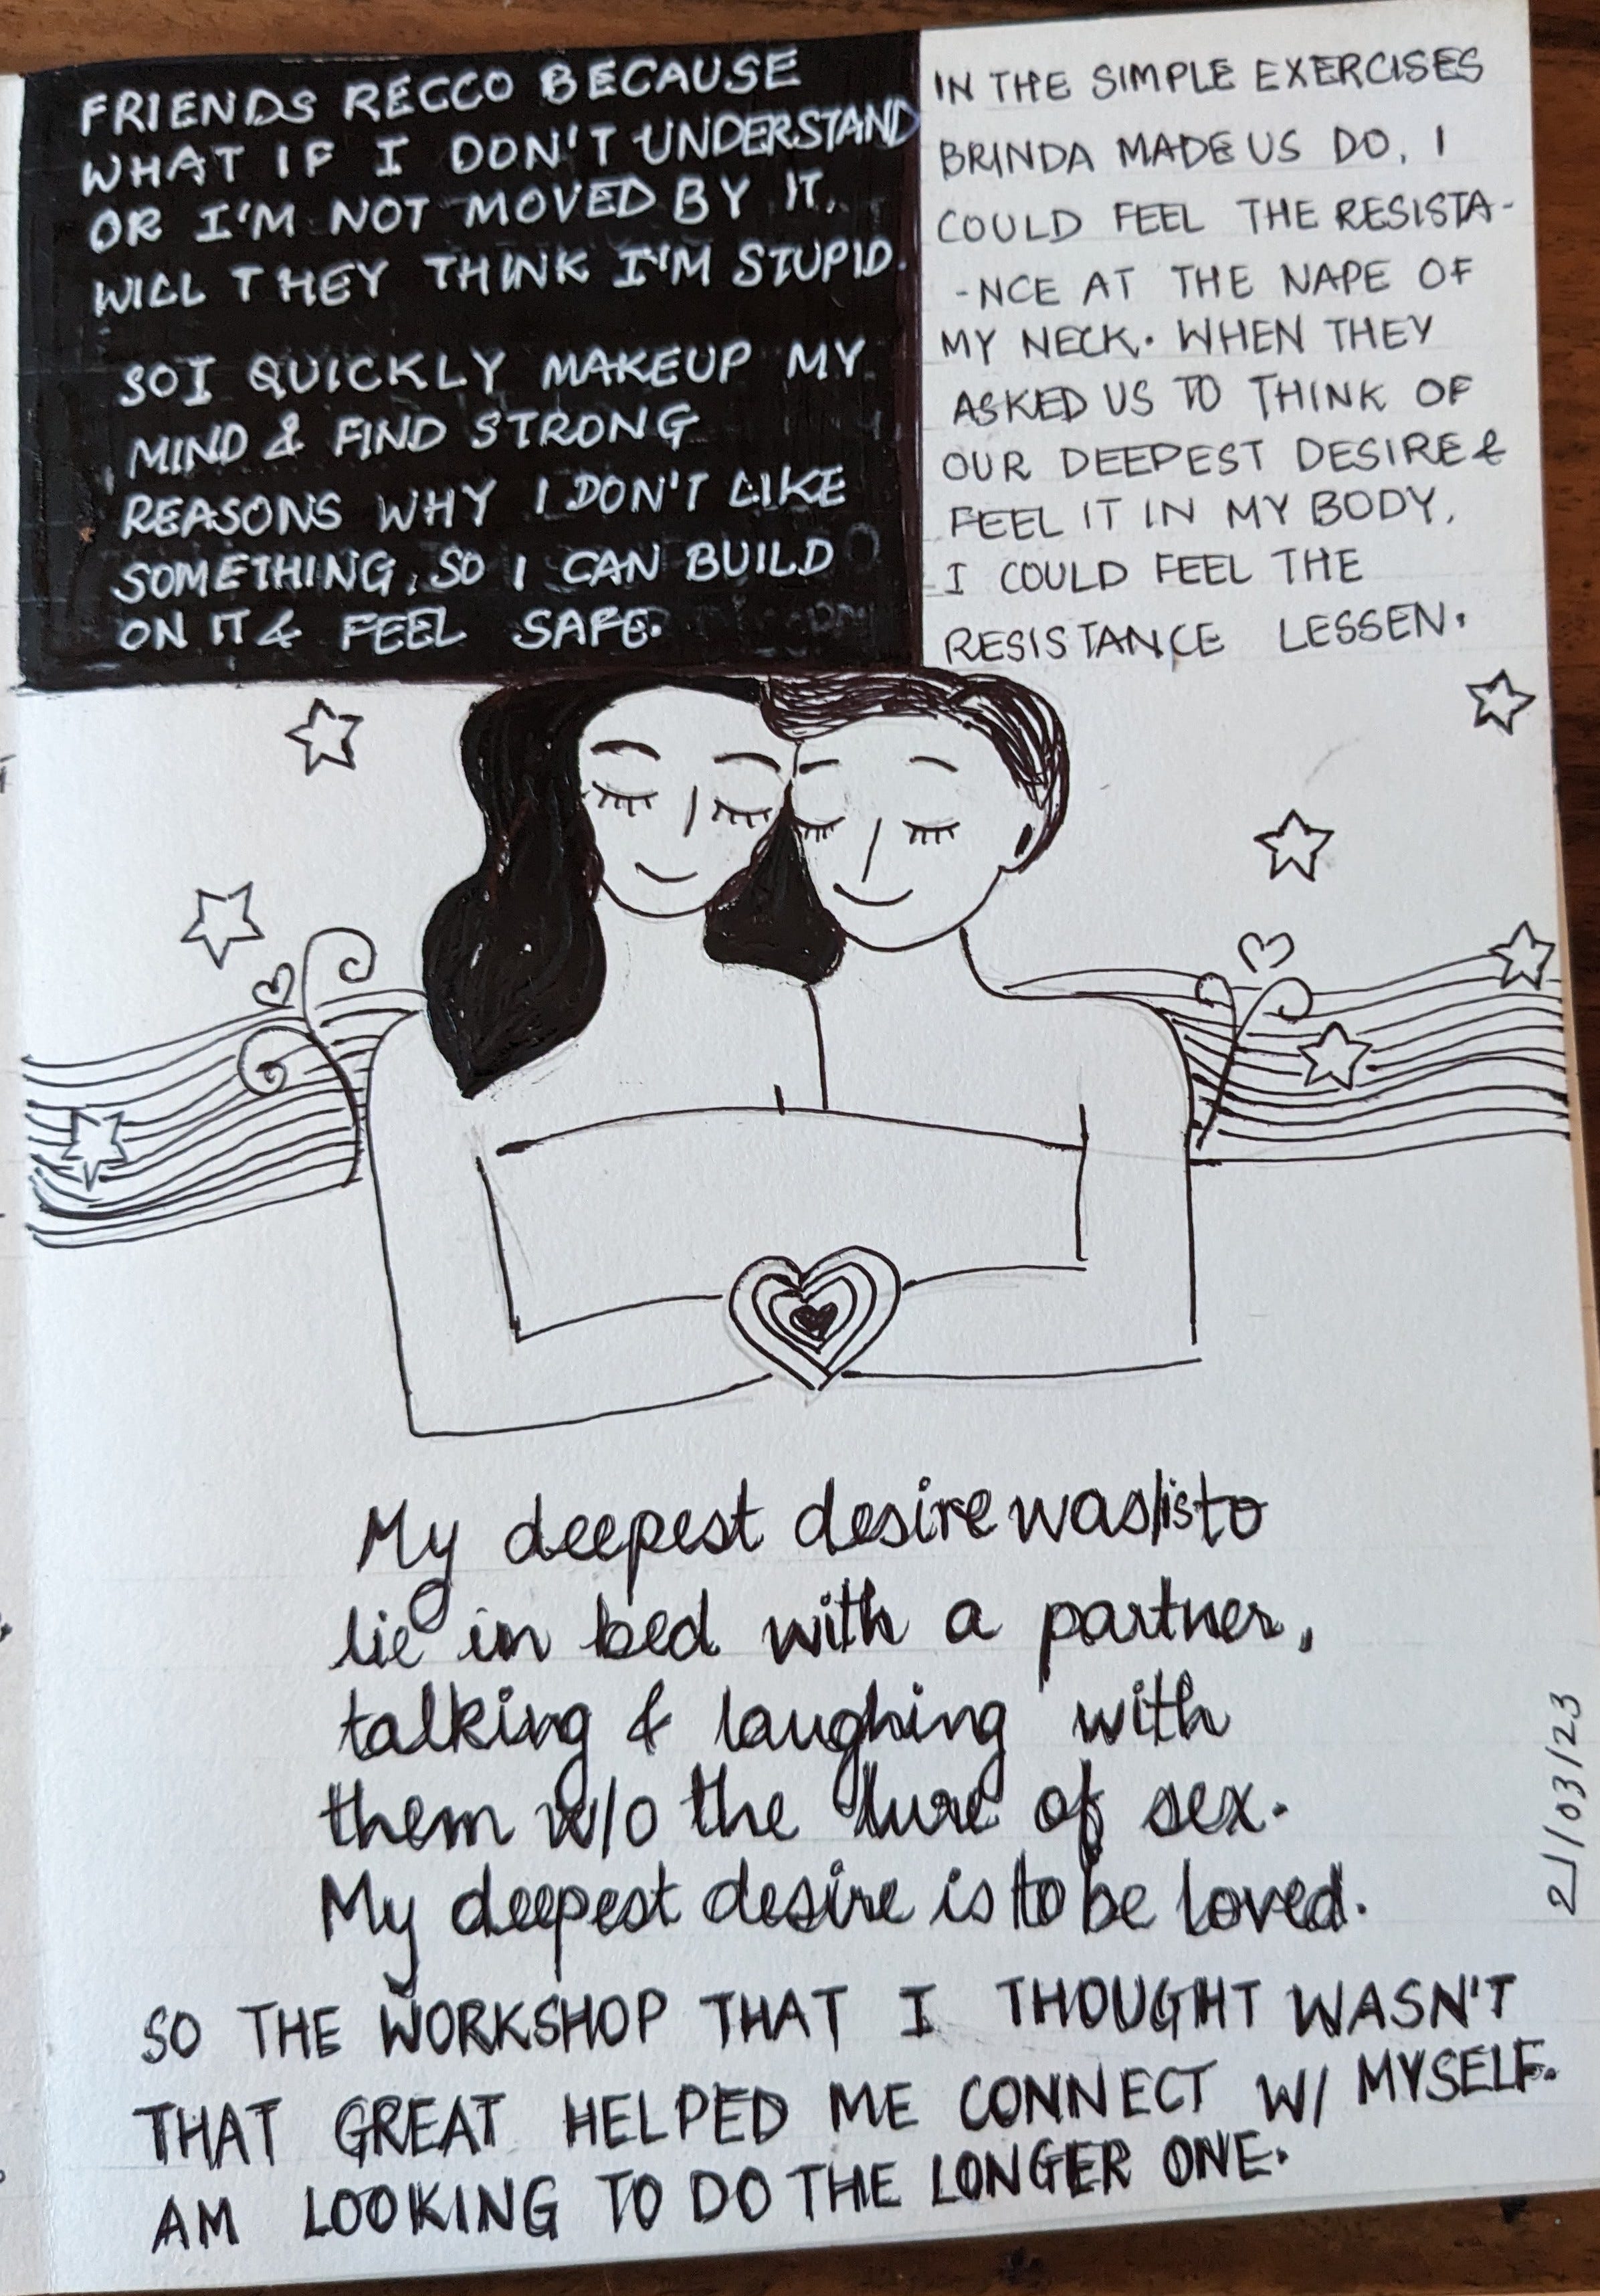 FRIENDS RECCO BECAUSE
WHAT IF I DON'T UNDERSTAND
OR I'M NOT MOVED BY IT.
WILL THEY THINK I'M STUPID.
SO I QUICKLY MAKEUP MY
MIND & FIND STRONG
REASONS WHY I DON'T LIKE
SOMETHING, SO I CAN BUILD
ON IT & FEEL SAFE.
IN THE SIMPLE EXERCISES
BRINDA MADE US DO, I
COULD FEEL THE RESISTA-
-NCE AT THE NAPE OF
MY NECK. WHEN THEY
ASKED US TO THINK OF
OUR DEEPEST DESIRE &
FEEL IT IN MY BODY,
I COULD FEEL THE
RESISTANCE LESSEN.
My deepest desire was/is to
lie in bed with a partner,
talking & laughing with
them w/o the lure of sex.
My deepest desire is to be loved.
21/03/23
SO THE WORKSHOP THAT I THOUGHT WASN'T
THAT GREAT HELPED ME CONNECT W/ MYSELF.
AM LOOKING TO DO THE LONGER ONE.